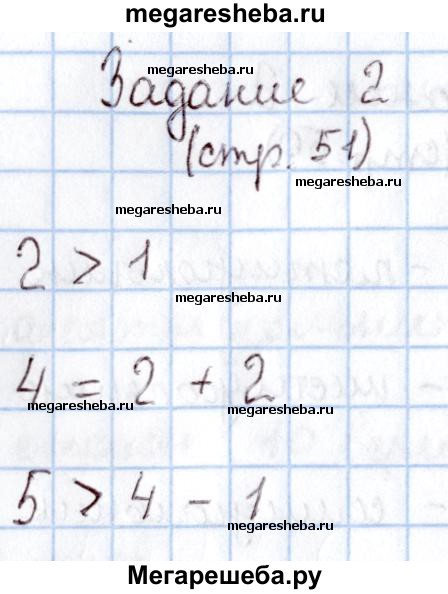 megaresheba.ru
Задание 2
megaresheba.ru
(стр. 51)
megaresheba.ru
megaresheba.ru
megaresheba.ru
2 > 1
megaresheba.ru
4 = 2 + 2
megaresheba.ru
megaresheba.ru
5 > 4 - 1
megaresheba.ru
Мегарешеба.ру